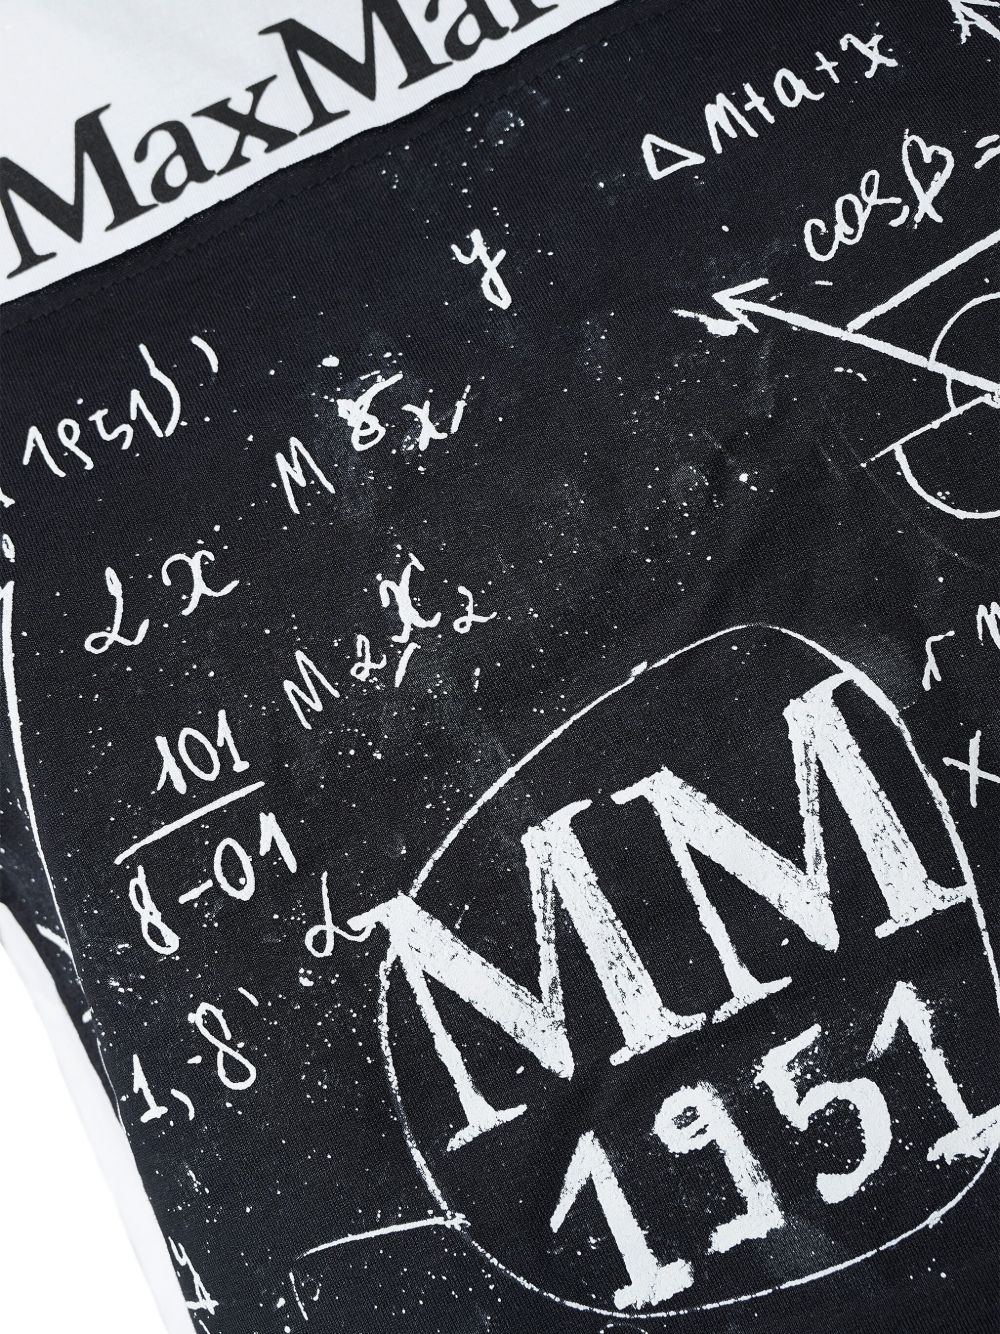 MaxMar
Δ M+a+x
cosβ =
y
1951)'
M 8 x
2 x
M 2 x 2
101
8-01
1,8'
MM
1951
x
y